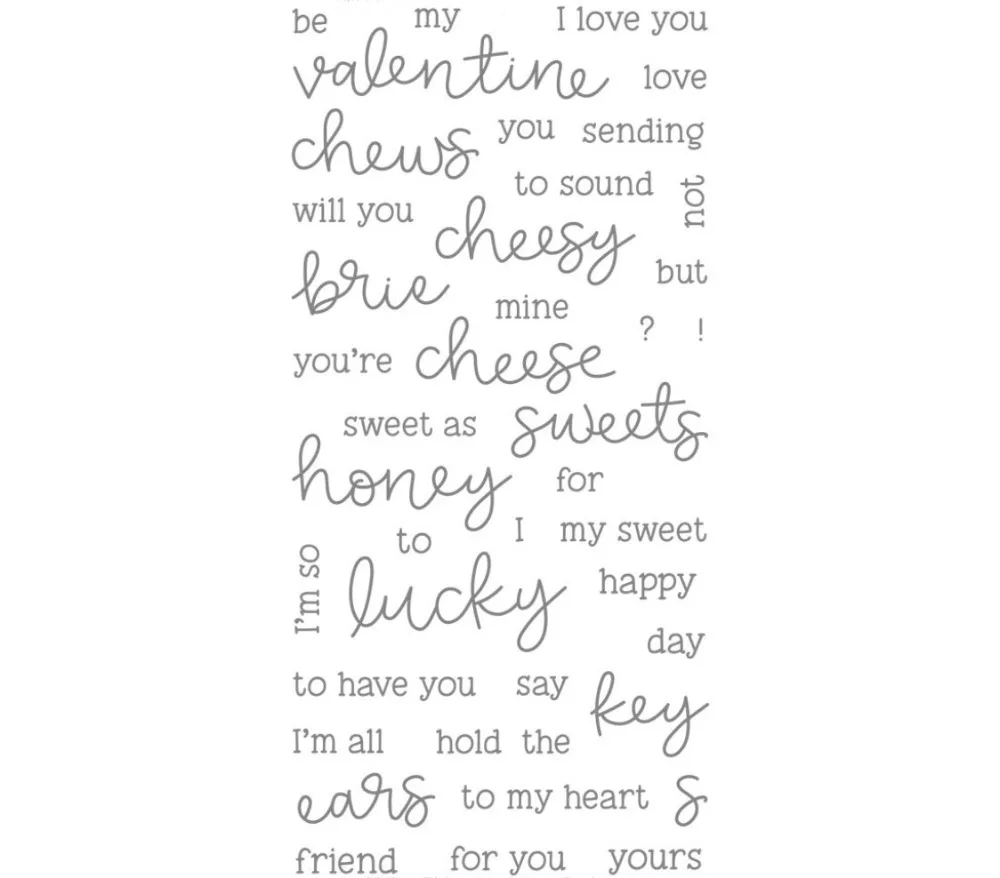 be my I love you
valentine love
chews you sending
to sound not
will you cheesy
brie but
mine
? !
you're cheese
sweet as sweets
honey for
to I my sweet
I'm so lucky happy
day
to have you say key
I'm all hold the
ears to my heart s
friend for you yours